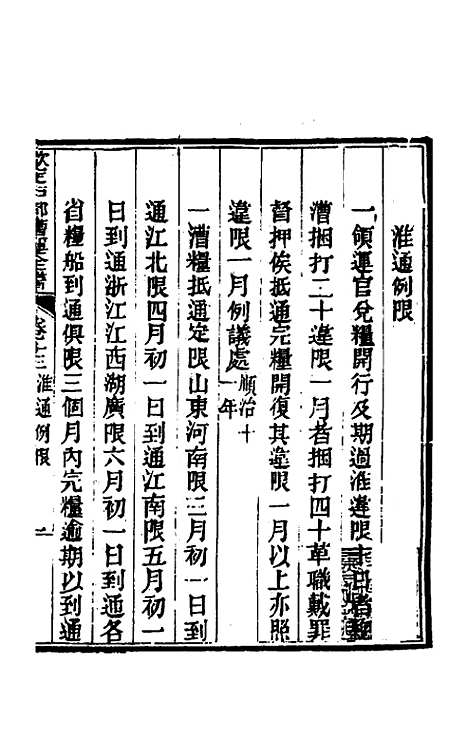 淮通例限
一領運官兌糧開行及期過淮違限十日者總
漕捆打二十違限一月者捆打四十革職戴罪
督押俟抵通完糧開復其違限一月以上亦照
違限一月例議處順治十一年
一漕糧抵通定限山東河南限三月初一日到
通江北限四月初一日到通江南限五月初一
日到通浙江江西湖廣限六月初一日到通各
省糧船到通俱限三個月內完糧逾期以到通
欽定戶部漕運全書 卷十三 淮通例限 一